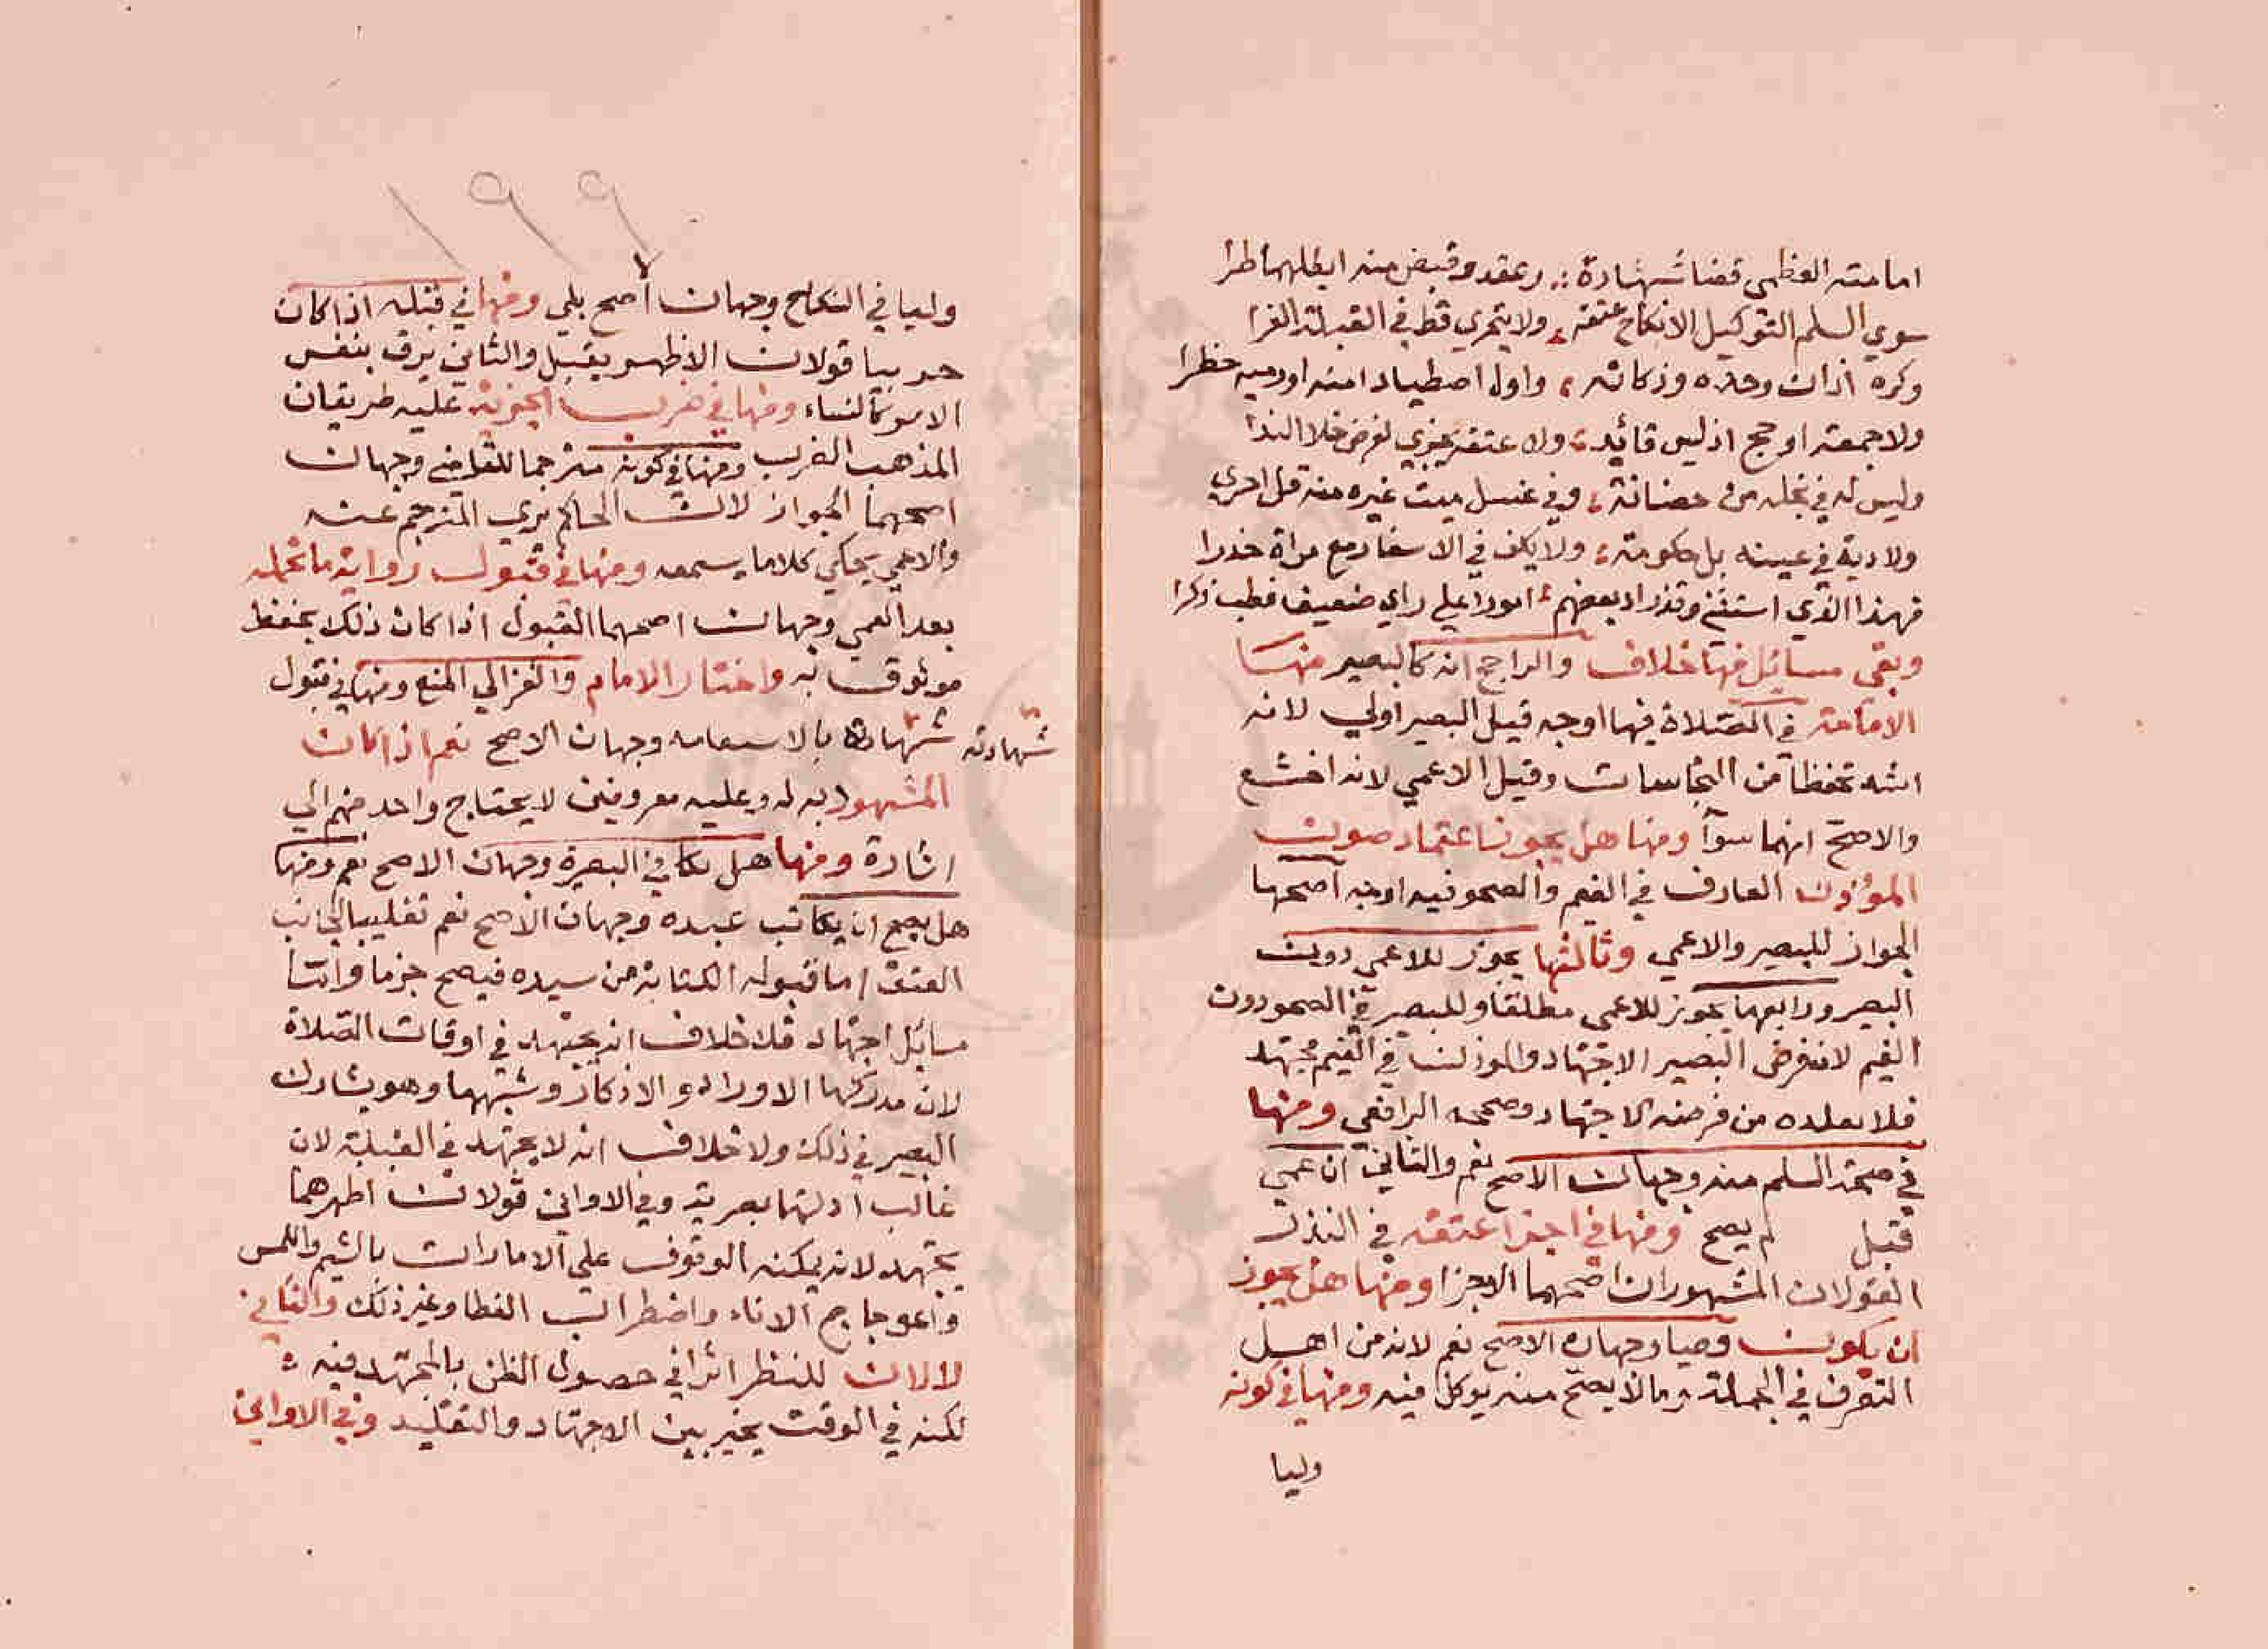 امامته العظمى قضا شهادة ∴ وعقد وقبض منه ابطلهما طرا
سوي السلم التوكيل الانكاح عتقه ؛ ولا يتحري قط في القبلة الغرا
وكره اذان وحده وذكاته ؛ واول اصطياد امنه اورميه حظرا
ولا جمعة او حج اذ ليس قائد ؛ ولا عتقه يجزي لفرض خلا النذرا
وليس له في نجله من حضانة ؛ وفي غسل ميت غيره منه قل احري
ولا دية في عينه بل حكومة ؛ ولا يكف في الاسفار مع مراة خدرا
فهذا الذي استثني وقد زاد بعضهم ؛ امورا علي راي ضعيف فطب ذكرا
وبقي مسائل فيها خلاف والراجح انه كالبصير منها
الامامة في الصلاة فيها اوجه قيل البصير اولي لانه
اشد تحفظا من النجاسات وقيل الاعمي لانه اخشع
والاصح انهما سوآ ومنها هل يجوز اعتماد صوت
المؤذن العارف في الغيم والصحو فيه اوجه اصحها
الجواز للبصير والاعمي وثالثها يجوز للاعمي دون
البصير ورابعها يجوز للاعمي مطلقا وللبصير في الصحو دون
الغيم لان فرض البصير الاجتهاد والموذن في الغيم مجتهد
فلا يقلده من فرضه الاجتهاد وصححه الرافعي ومنها
في صحة السلم منه وجهان الاصح نعم والثاني ان عمي
قبل لم يصح ومنها في اجزا عتقه في النذر
القولان المشهوران اصحهما الاجزا ومنها هل يجوز
ان يكون وصيا وجهان الاصح نعم لانه من اهل
التصرف في الجملة وما لا يصح منه يوكل فيه ومنها في كونه
وليا
١٩٩
وليا في النكاح وجهان اصح يلي ومنها في قتله اذا كان
حربيا قولان الاظهر يقتل والثاني يرق بنفس
الاسر كالنساء ومنها في ضرب الجزية عليه طريقان
المذهب الضرب ومنها في كونه مترجما للقاضي وجهان
اصحهما الجواز لان الحاكم يري المترجم عنه
والاعمي يحكي كلاما يسمعه ومنها في قبول رواية ما تحمله
بعد العمي وجهان اصحهما القبول اذا كان ذلك بحفظ
موثوق به واختار الامام والغزالي المنع ومنها في قبول
شهادته شهادة بالاستفاضه وجهان الاصح نعم اذا كان
المشهود به له وعليه معروفين لا يحتاج واحد منهم الي
اشارة ومنها هل يكافي البصيرة وجهان الاصح نعم ومنها
هل يصح ان يكاتب عبده وجهان الاصح نعم تغليبا لجانب
العتق اما قبوله الكتابة من سيده فيصح جزما واما
مسائل اجتهاد فلا خلاف انه يجتهد في اوقات الصلاة
لان مدركها الاوراد والاذكار وشبهها وهو يشارك
البصير في ذلك ولا خلاف انه لا يجتهد في القبلة لان
غالب ادلتها بصرية وفي الاواني قولان اظهرهما
يجتهد لانه يمكنه الوقوف علي الامارات بالشم واللمس
واعوجاج الاناء واضطراب الغطا وغير ذلك والثاني
لا لان للنظر اثرا في حصول الظن بالمجتهد فيه ؛
لكنه في الوقت يخير بين الاجتهاد والتقليد وفي الاواني